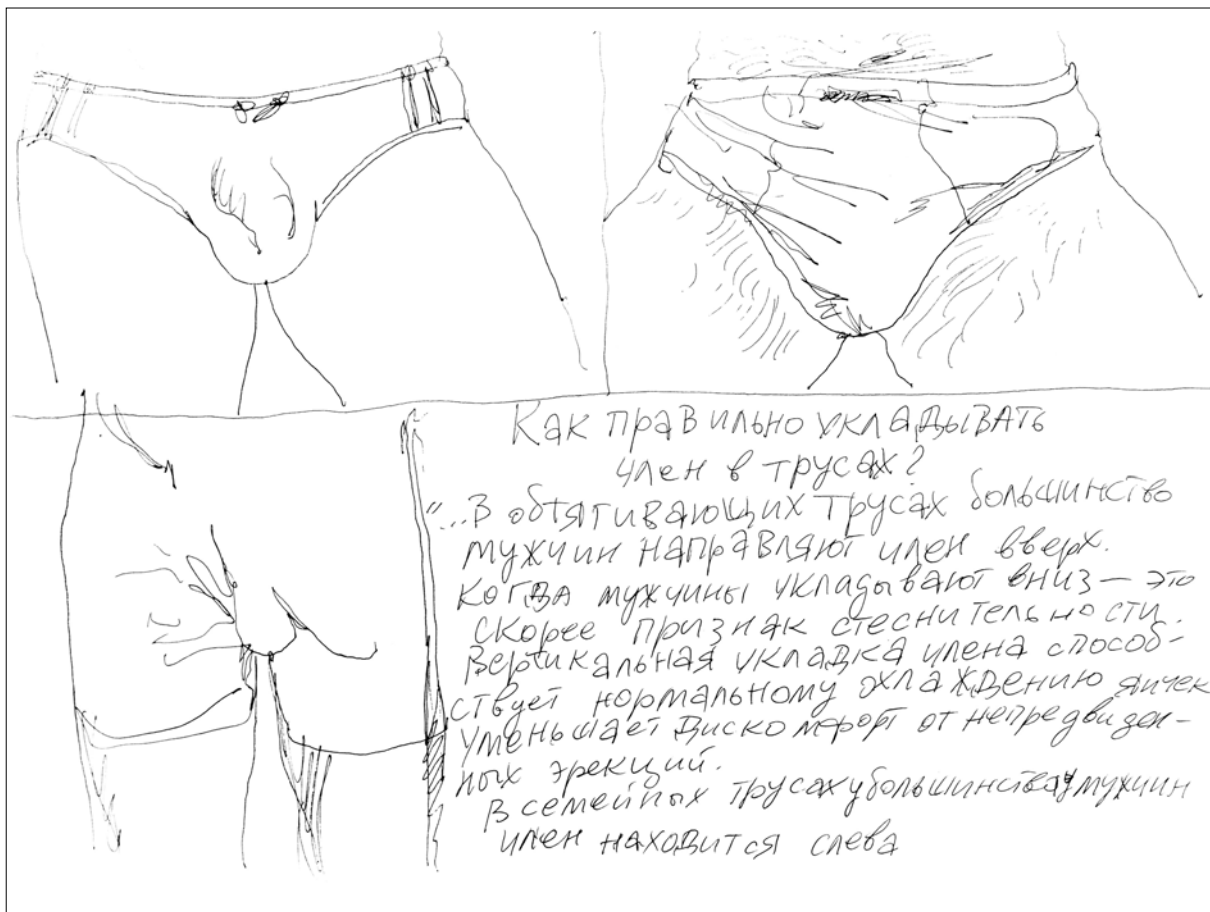 Как правильно укладывать
член в трусах?
"...В обтягивающих трусах большинство
мужчин направляют член вверх.
Когда мужчины укладывают вниз — это
скорее признак стеснительности.
Вертикальная укладка члена способ-
ствует нормальному охлаждению яичек
уменьшает дискомфорт от непредвиден-
ных эрекций.
В семейных трусах у большинства мужчин
член находится слева